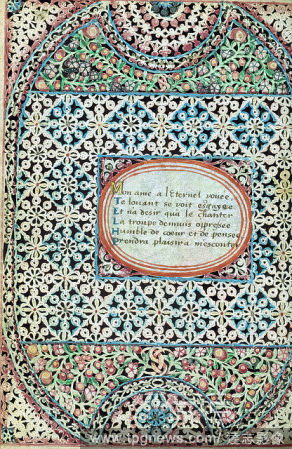 Mon ame a lEternel vouee
Te louant se voit esgayee
Et na desir qua le chanter
La troupe demuis opresee
Humble de coeur et de pensee
Prendra plaisir a mescouter
www.tpgnews.com 达志影像